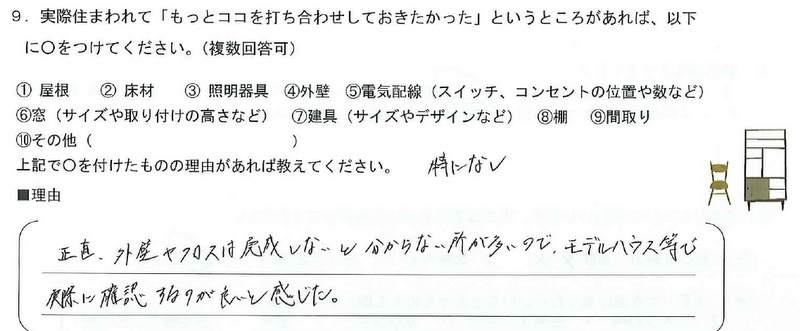 9．実際住まわれて「もっとココを打ち合わせしておきたかった」というところがあれば、以下
に〇をつけてください。（複数回答可）
① 屋根　② 床材　③ 照明器具　④外壁　⑤電気配線（スイッチ、コンセントの位置や数など）
⑥窓（サイズや取り付けの高さなど）　⑦建具（サイズやデザインなど）　⑧棚　⑨間取り
⑩その他（　　　　　　　　　　　　　）
上記で〇を付けたものの理由があれば教えてください。　特になし
■理由
正直、外壁やクロスは完成しないと分からない所が多いので、モデルハウス等で
実際に確認するのが良いと感じた。